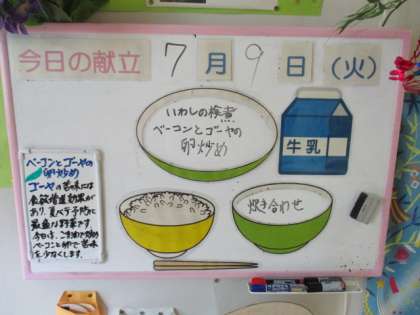 今日の献立 7月9日(火)
いわしの梅煮
ベーコンとゴーヤの
卵炒め
牛乳
炊き合わせ
ベーコンとゴーヤの
卵炒め
ゴーヤの苦味には
食欲増進効果が
あり、夏バテ予防に
最適な野菜です
今日は、ごま油で炒め
ベーコンと卵で苦味
を少なくします。